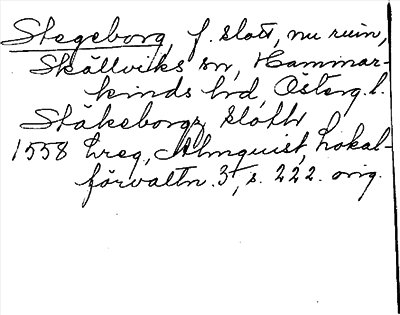 Stegeborg, f. slott, nu ruin,
Skällviks sn, Hammar-
kinds hd, Österg. l.
Stäkeborgz slott
1558 treg, Almquist, Lokal-
förvaltn. 3, s. 222. orig.